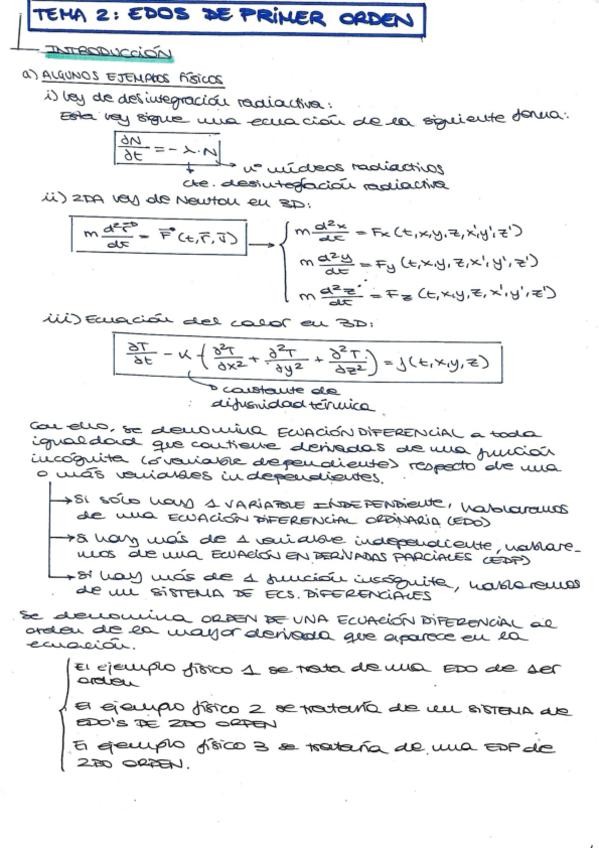 TEMA 2: EDOS DE PRIMER ORDEN
INTRODUCCIÓN
a) ALGUNOS EJEMPLOS FÍSICOS
i) Ley de desintegración radiactiva:
Esta ley sigue una ecuación de la siguiente forma:
∂N/∂t = -λ·N
nº núcleos radiactivos
cte. desintegración radiactiva
ii) 2DA Ley de Newton en 3D:
m d²r⃗/dt = F⃗ (t, r⃗, v⃗) → { m d²x/dt = Fx (t,x,y,z,x',y',z')
m d²y/dt = Fy (t,x,y,z,x',y',z')
m d²z/dt = Fz (t,x,y,z,x',y',z')
iii) Ecuación del calor en 3D:
∂T/∂t - K (∂²T/∂x² + ∂²T/∂y² + ∂²T/∂z²) = f(t,x,y,z)
constante de
difusividad térmica
Con ello, se denomina ECUACIÓN DIFERENCIAL a toda
igualdad que contiene derivadas de una función
incógnita (ó variable dependiente) respecto de una
o más variables independientes.
→ Si sólo hay 1 VARIABLE INDEPENDIENTE, hablaremos
de una ECUACIÓN DIFERENCIAL ORDINARIA (EDO)
→ Si hay más de 1 variable independiente, hablare-
mos de una ECUACIÓN EN DERIVADAS PARCIALES (EDP)
→ Si hay más de 1 función incógnita, hablaremos
de un SISTEMA DE ECS. DIFERENCIALES
Se denomina ORDEN DE UNA ECUACIÓN DIFERENCIAL al
orden de la mayor derivada que aparece en la
ecuación.
El ejemplo físico 1 se trata de una EDO de 1er
orden
El ejemplo físico 2 se trataría de un SISTEMA DE
EDO'S DE 2DO ORDEN
El ejemplo físico 3 se trataría de una EDP de
2DO ORDEN.